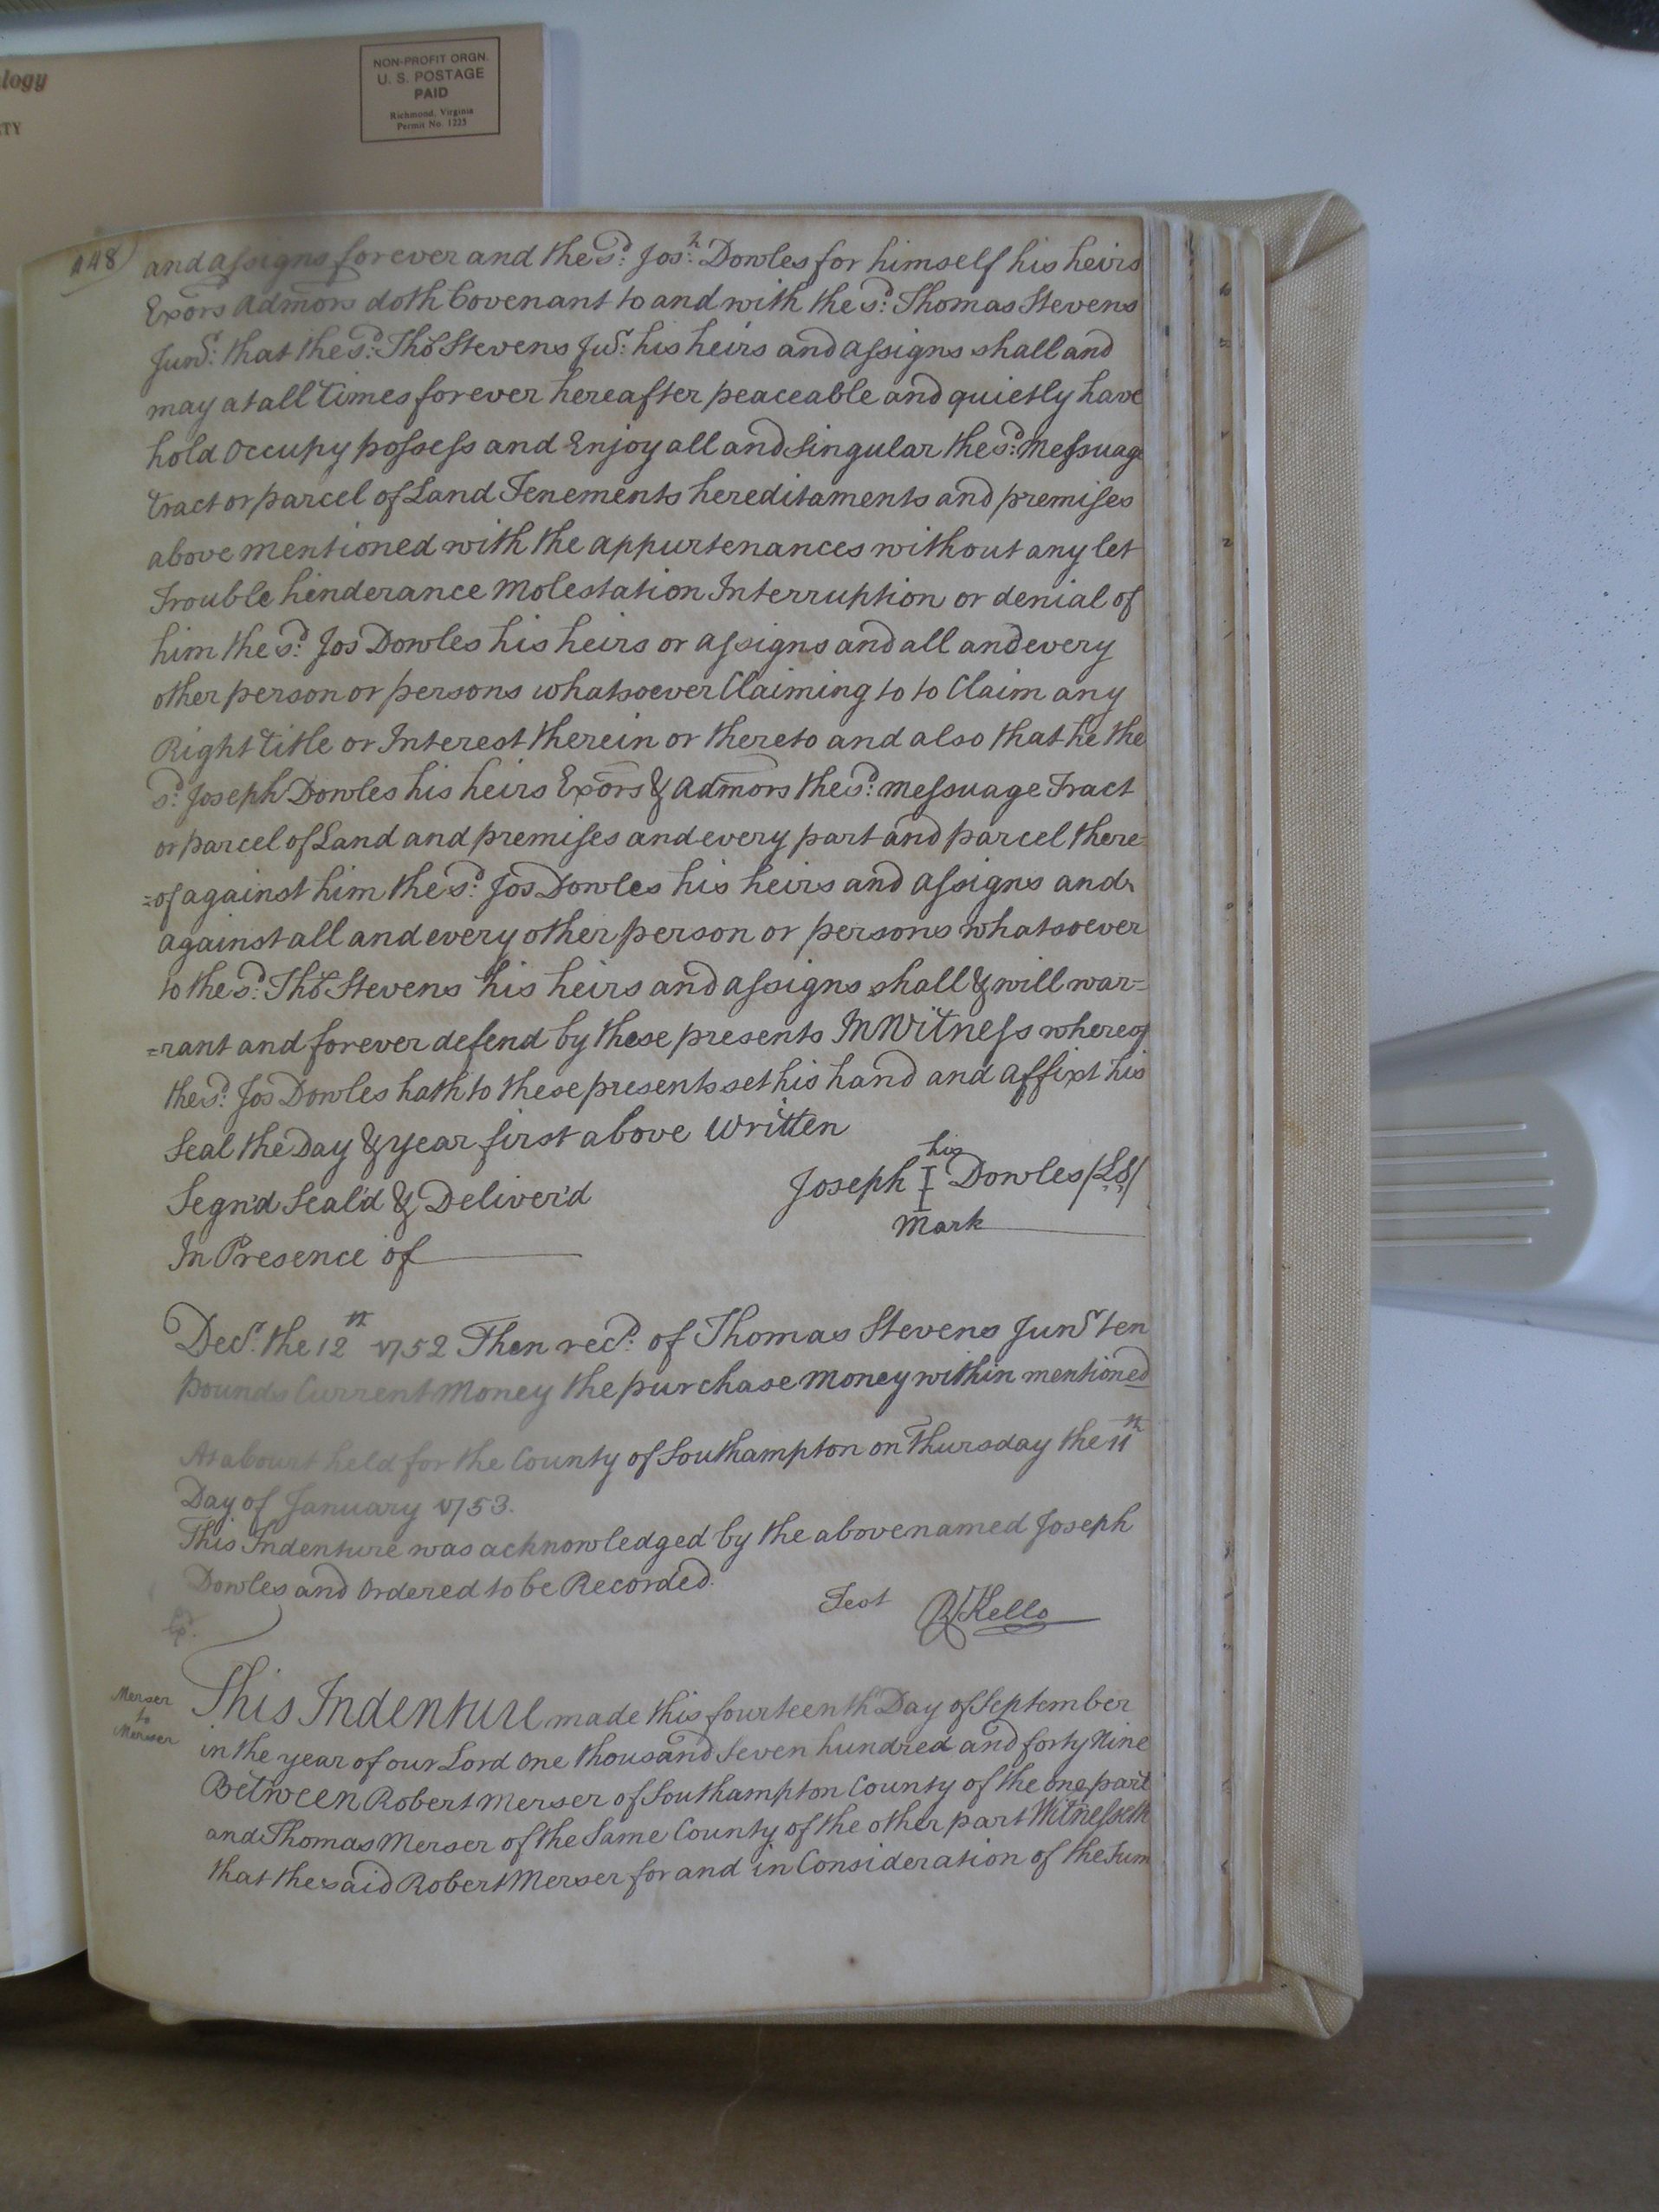 logy
TY
NON-PROFIT ORGN.
U. S. POSTAGE
PAID
Richmond, Virginia
Permit No. 1225
448)
and assigns forever and the sd. Josh. Dowles for himself his heirs
Exors Admors doth Covenant to and with the sd. Thomas Stevens
Junr. that the sd. Tho Stevens Jur. his heirs and assigns shall and
may at all times forever hereafter peaceable and quietly have
hold Occupy possess and Enjoy all and Singular the sd. Messuage
tract or parcel of Land Tenements hereditaments and premises
above mentioned with the appurtenances without any let
Trouble hinderance Molestation Interruption or denial of
him the sd. Jos Dowles his heirs or assigns and all and every
other person or persons whatsoever Claiming to to Claim any
Right title or Interest therein or thereto and also that he the
sd. Joseph Dowles his heirs Exors & Admors the sd. Messuage Tract
or parcel of Land and premises and every part and parcel there=
=of against him the sd. Jos Dowles his heirs and assigns and
against all and every other person or persons whatsoever
to the sd. Tho Stevens his heirs and assigns shall & will war=
=rant and forever defend by these presents In Witness whereof
the sd. Jos Dowles hath to these presents set his hand and affixt his
Seal the Day & year first above Written
his
Segn'd Seal'd & Deliver'd Joseph I Dowles (LS)
Mark
In Presence of
Decr. the 12th 1752 Then recd. of Thomas Stevens Junr ten
pounds Current Money the purchase money within mentioned
At a Court held for the County of Southampton on Thursday the 11th
Day of January 1753.
This Indenture was acknowledged by the above named Joseph
Dowles and Ordered to be Recorded.
Test R Kello
Merser
to
Merser
This Indenture made this fourteenth Day of September
in the year of our Lord one thousand Seven hundred and forty Nine
Between Robert Merser of Southampton County of the one part
and Thomas Merser of the Same County of the other part Witnesseth
that the said Robert Merser for and in Consideration of the Sum